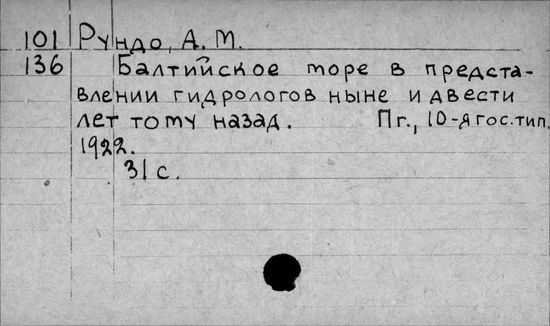 101 Рундо, А. М.
136 Балтийское море в предста-
влении гидрологов ныне и двести
лет тому назад. Пг., 10-я гос. тип.
1922.
31 с.